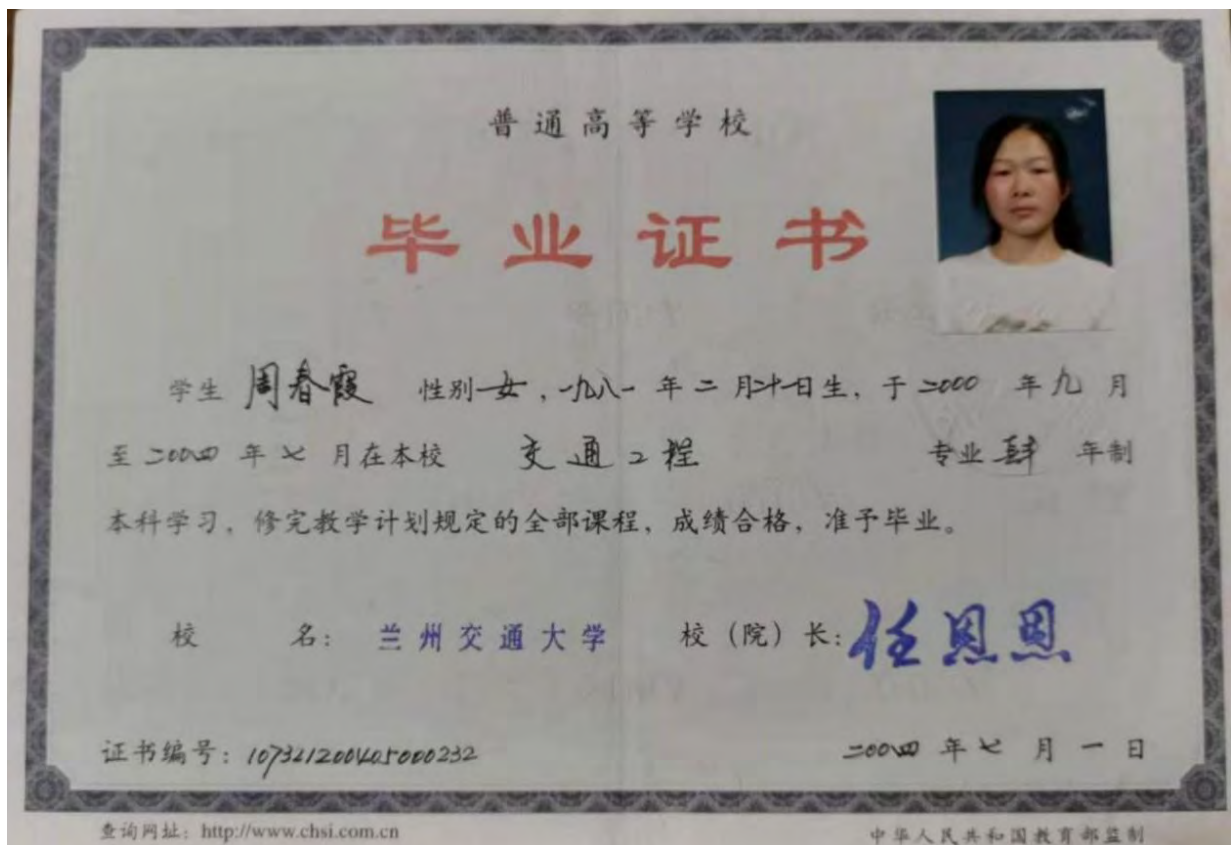 普通高等学校
毕业证书
学生 周春霞 性别 女，一九八一年二月二十日生，于二000年九月
至二00四年七月在本校 交通工程 专业 肆 年制
本科学习，修完教学计划规定的全部课程，成绩合格，准予毕业。
校 名：兰州交通大学 校（院）长：任恩恩
证书编号：107321200405000232
二00四年七月一日
查询网址：http://www.chsi.com.cn
中华人民共和国教育部监制